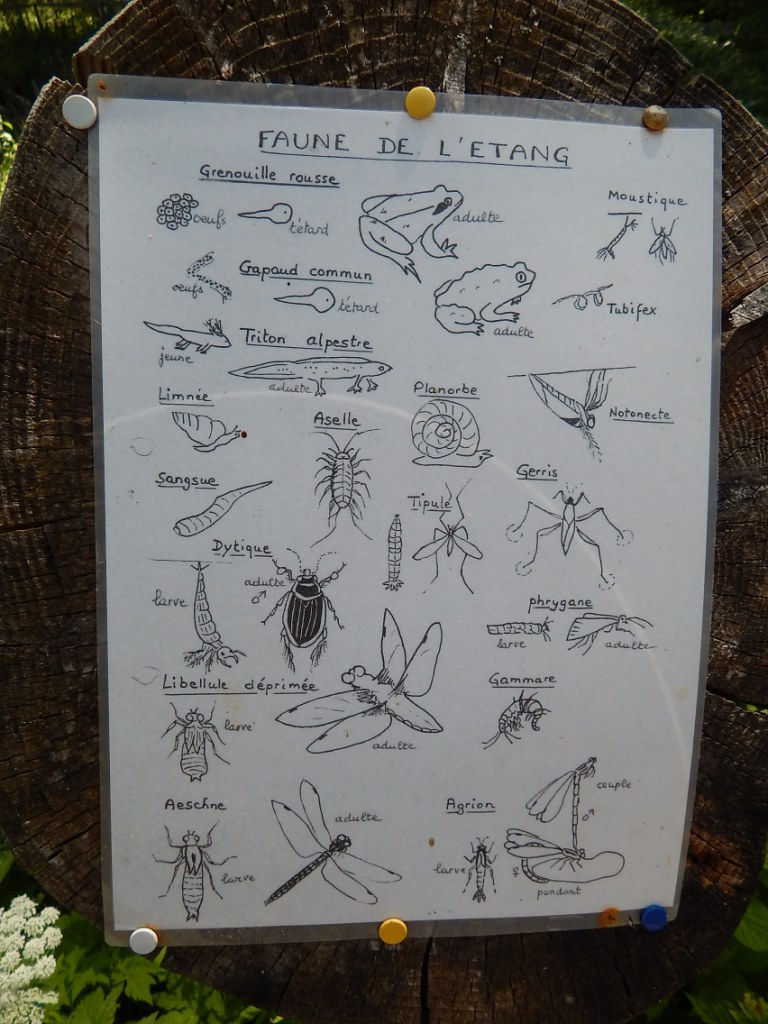 FAUNE DE L'ETANG
Grenouille rousse
oeufs
tétard
adulte
Moustique
oeufs
Gapaud commun
tétard
adulte
Tubifex
jeune
Triton alpestre
adulte
Limnée
Aselle
Planorbe
Notonecte
Sangsue
Tipule
Gerris
Dytique
larve
adulte
♂
phrygane
larve
adulte
Libellule déprimée
larve
adulte
Gammare
Aeschne
larve
adulte
Agrion
larve
couple
♂
♀
pondant